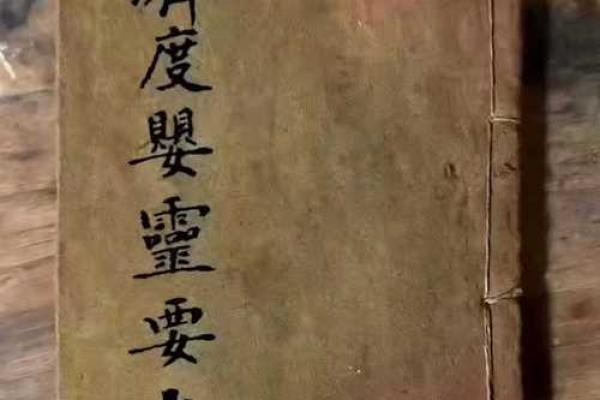 度嬰靈要